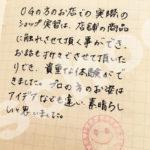 OGの方のお店での実際の
ショップ実習は、店舗の商品
に触れさせて頂く事ができ、
お話もすけさせて頂いた
り、貴重な体験ができ
ました。プロの方のお姿は
アイデアなども凄い素晴らし
いと思いました。